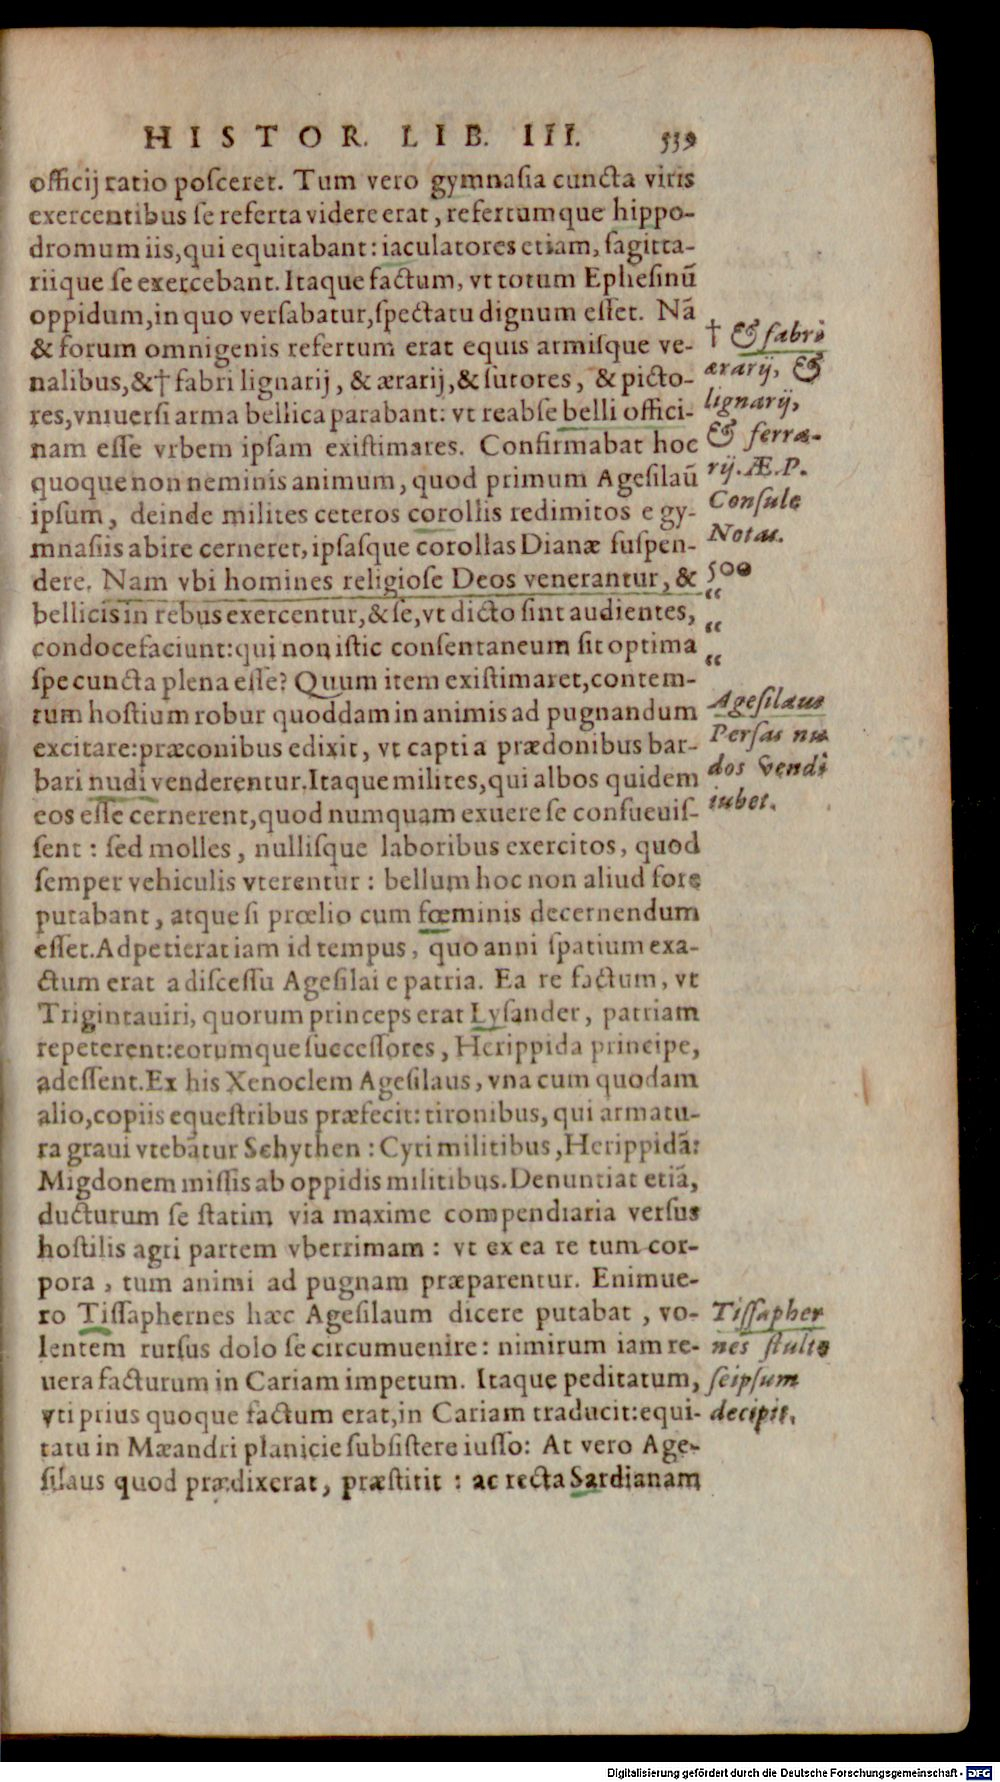 HISTOR. LIB. III. 539
officij ratio posceret. Tum vero gymnasia cuncta viris
exercentibus se referta videre erat, refertumque hippo-
dromum iis, qui equitabant: iaculatores etiam, sagitta-
riique se exercebant. Itaque factum, vt totum Ephesinũ
oppidum, in quo versabatur, spectatu dignum esset. Nã
& forum omnigenis refertum erat equis armisque ve-
nalibus, &† fabri lignarij, & ærarij, & sutores, & picto-
res, vniuersi arma bellica parabant: vt reabse belli offici-
nam esse vrbem ipsam existimares. Confirmabat hoc
quoque non neminis animum, quod primum Agesilaũ
ipsum, deinde milites ceteros corollis redimitos e gy-
mnasiis abire cerneret, ipsasque corollas Dianæ suspen-
dere. Nam vbi homines religiose Deos venerantur, &
bellicis in rebus exercentur, & se, vt dicto sint audientes,
condocefaciunt: qui non istic consentaneum sit optima
spe cuncta plena esse? Quum item existimaret, contem-
tum hostium robur quoddam in animis ad pugnandum
excitare: præconibus edixit, vt capti a prædonibus bar-
bari nudi venderentur. Itaque milites, qui albos quidem
eos esse cernerent, quod numquam exuere se consueuis-
sent: sed molles, nullisque laboribus exercitos, quod
semper vehiculis vterentur: bellum hoc non aliud fore
putabant, atque si prœlio cum fœminis decernendum
esset. Adpetierat iam id tempus, quo anni spatium exa-
ctum erat a discessu Agesilai e patria. Ea re factum, vt
Trigintauiri, quorum princeps erat Lysander, patriam
repeterent: eorumque successores, Herippida principe,
adessent. Ex his Xenoclem Agesilaus, vna cum quodam
alio, copiis equestribus præfecit: tironibus, qui armatu-
ra graui vtebãtur Schythen: Cyri militibus, Herippidã:
Migdonem missis ab oppidis militibus. Denuntiat etiã,
ducturum se statim via maxime compendiaria versus
hostilis agri partem vberrimam: vt ex ea re tum cor-
pora, tum animi ad pugnam præparentur. Enimue-
ro Tissaphernes hæc Agesilaum dicere putabat, vo-
lentem rursus dolo se circumuenire: nimirum iam re-
uera facturum in Cariam impetum. Itaque peditatum,
vti prius quoque factum erat, in Cariam traducit: equi-
tatu in Mæandri planicie subsistere iusso: At vero Age-
silaus quod prædixerat, præstitit: ac recta Sardianam
† & fabri
ærarij, &
lignarij,
& ferra-
rij. Æ. P.
Consule
Notas.
500
“
“
“
Agesilaus
Persas nu
dos vendi
iubet.
Tissapher
nes stulte
seipsum
decipit.
Digitalisierung gefördert durch die Deutsche Forschungsgemeinschaft - DFG